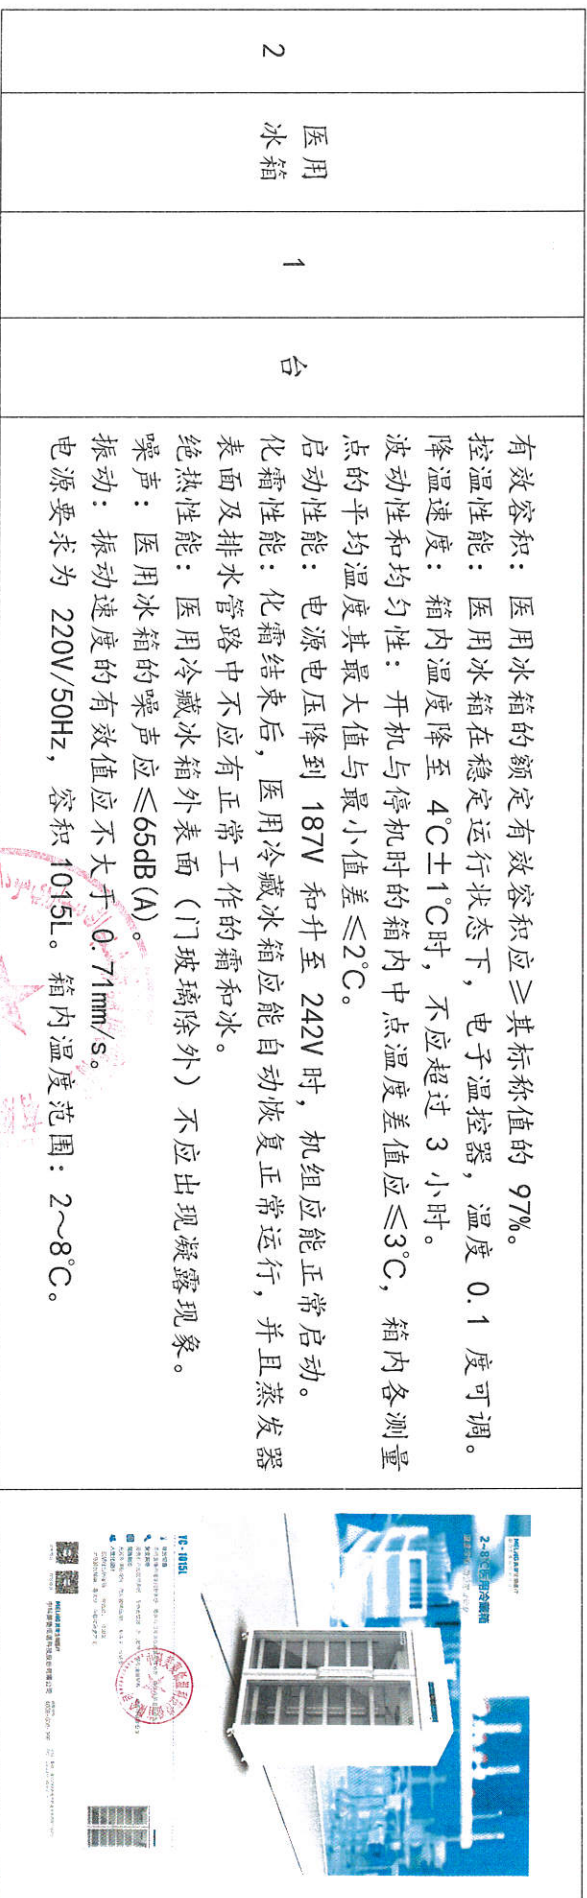 2
医用
冰箱
1
台
有效容积：医用冰箱的额定有效容积应≥其标称值的 97%。
控温性能：医用冰箱在稳定运行状态下，电子温控器，温度 0.1 度可调。
降温速度：箱内温度降至 4℃±1℃时，不应超过 3 小时。
波动性和均匀性：开机与停机时的箱内中点温度差值应≤3℃，箱内各测量
点的平均温度其最大值与最小值差≤2℃。
启动性能：电源电压降到 187V 和升至 242V 时，机组应能正常启动。
化霜性能：化霜结束后，医用冷藏冰箱应能自动恢复正常运行，并且蒸发器
表面及排水管路中不应有正常工作的霜和冰。
绝热性能：医用冷藏冰箱外表面（门玻璃除外）不应出现凝露现象。
噪声：医用冰箱的噪声应≤65dB(A)。
振动：振动速度的有效值应不大于 0.71mm/s。
电源要求为 220V/50Hz，容积 1015L。箱内温度范围：2～8℃。
MELING
2~8℃医用冷藏箱
YC-1015L